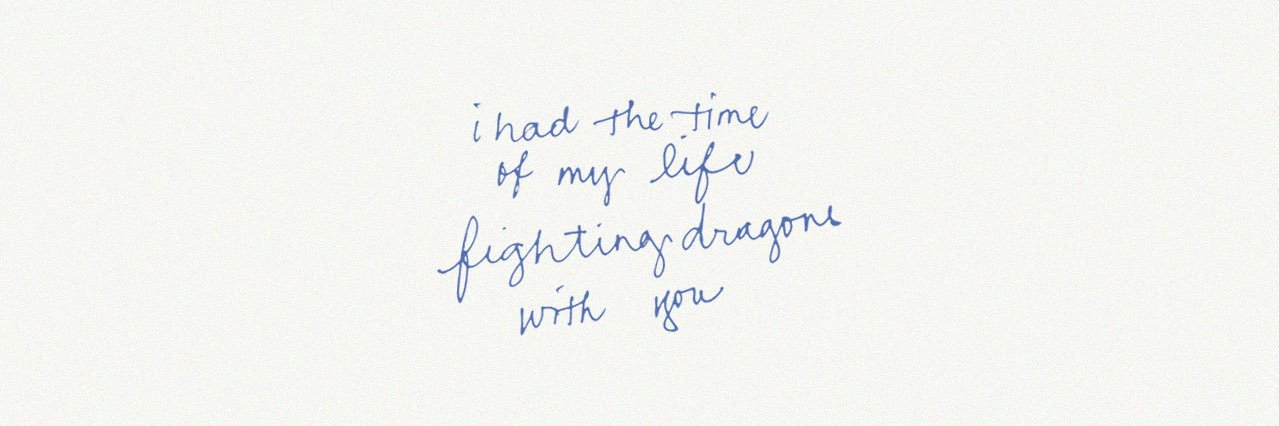 i had the time
of my life
fighting dragons
with you